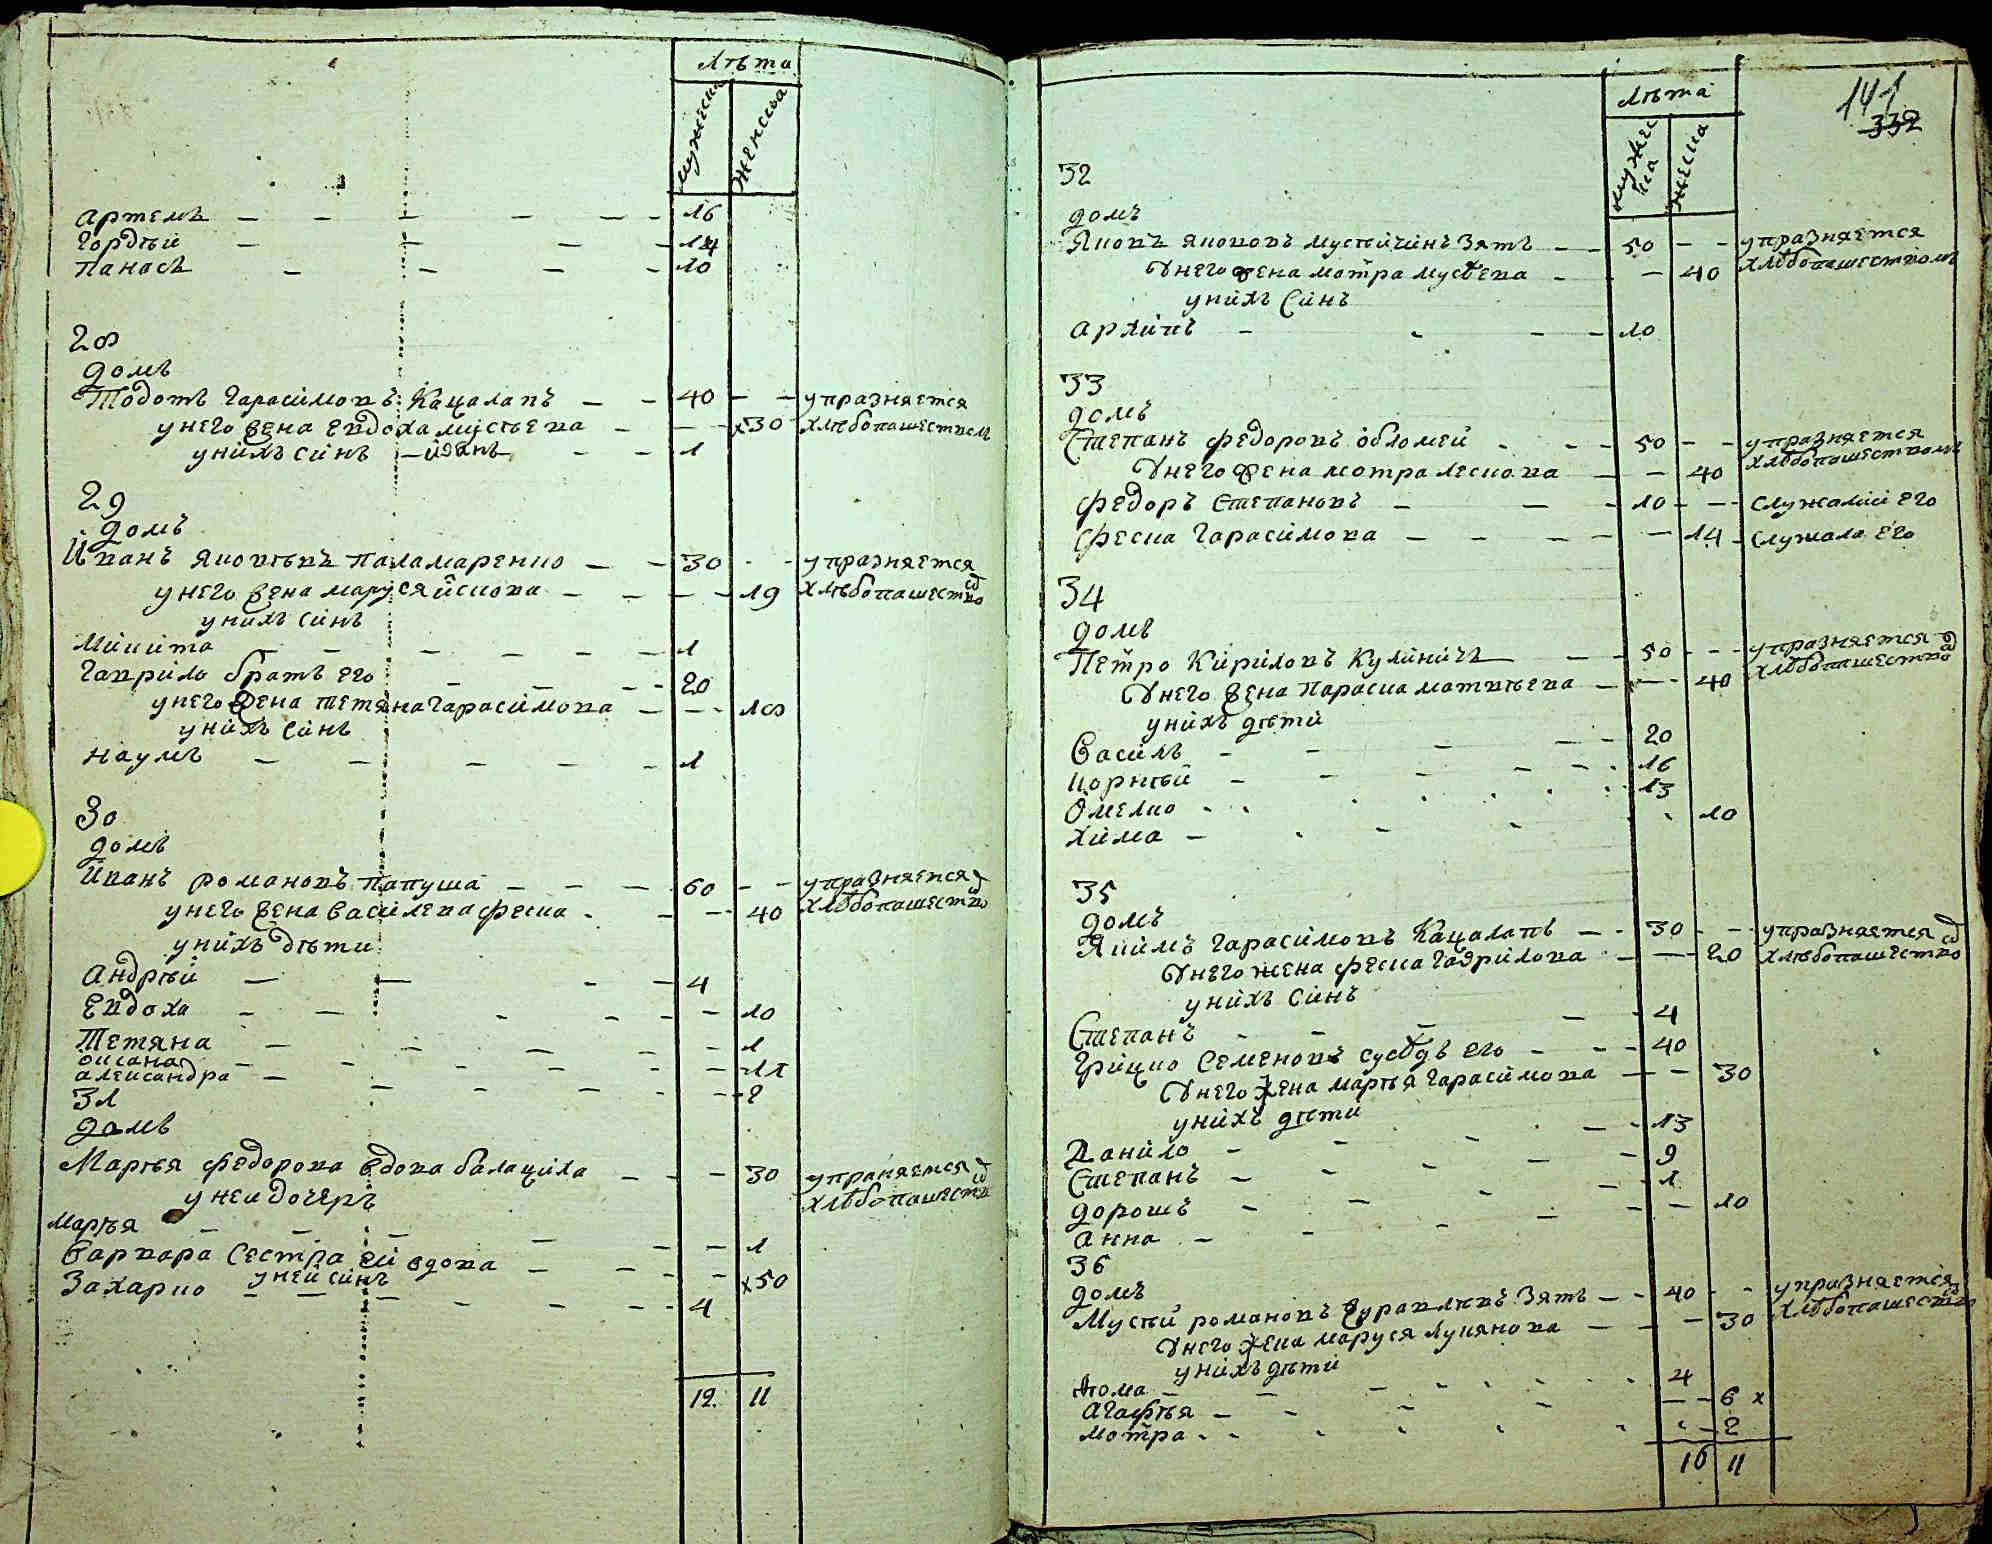 лѣта
мужеска
женска
артемъ — — — — — 16
Гордѣй — — — — 14
панасъ — — — — 10
28
домъ
Тодотъ Гарасимовъ Кацалапъ — — 40 — — упразняется
у него жена Евдоха мусѣева — — — х30 хлѣбопашествомъ
у нихъ синъ — иванъ — — 1
29
домъ
Иванъ яковлѣвъ паламаренко — — 30 - - упразняется
у него жена маруся йскова — — — — 19 хлѣбопашество
у нихъ синъ
Микита — — — — — 1
Гаврило братъ его — — — — 20
у него жена тетяна Гарасимова — — - 18
у нихъ синъ
наумъ — — — — — 1
30
домъ
Иванъ романовъ папуша — — — 60 — — упразняется
у него жена василева феска - — — - 40 хлѣбопашество
у нихъ дѣти
Андрѣй — — — — 4
Евдоха — — — — — — 10
Тетяна — — — — — 1
оксана
александра — — — — — — 2
31
домъ
Марѣя федорова вдова балациха — — — 30 упраняется
у неи дочеръ хлѣбопашеств
Марѣя — — — — — — 1
Варвара сестра ей вдова — — — — х50
у ней синъ
Захарко — — — — — — — 4
12. 11
141
332
лѣта
мужеска
женска
32
домъ
Яковъ якововъ мусѣйчинъ зять — — 50 — — упразняется
У него жена мотра мусѣева — — 40 хлѣбопашествомъ
у нихъ синъ
архипъ — - — — 10
33
домъ
Степанъ федоровъ обломей - - — 50 — — упразняется
У него жена мотра лескова — — 40 хлѣбопашествомъ
федоръ степановъ — — — 10 - — — служалий его
феска Гарасимова — — — — — 14 - служала его
34
домъ
Петро Кириловъ Кулиничъ — — 50 - - - упразняется
У него жена параска матвѣева — — — 40 хлѣбопашество
у нихъ дѣти
василь — — — — — 20
корнѣй — — — — . 16
Омелко - - . . . . 13
хима — . — - . . 10
35
домъ
Якимъ Гарасимовъ Кацалапъ — - 30 - - упразняется
У него жена феска Гаврилова — — — 20 хлѣбопашество
у нихъ синъ
Степанъ — — — — 4
Грицко Семеновъ сусѣдъ его — — - 40
У него жена марѣя Гарасимова — — — 30
у нихъ дѣти
Данило — — - — — 13
Степанъ — — — — — 9
дорошъ — — — — — 1
анна — — — — — 10
36
домъ
Мусѣй романовъ журавлѣвъ зять — - 40 - - упразняется
У него жена маруся лукянова — — — 30 хлѣбопашество
у нихъ дѣти
хома — — — - - . . 4
агафѣя — - - — — - 6 х
мотра - - . . . . - 2
16 11